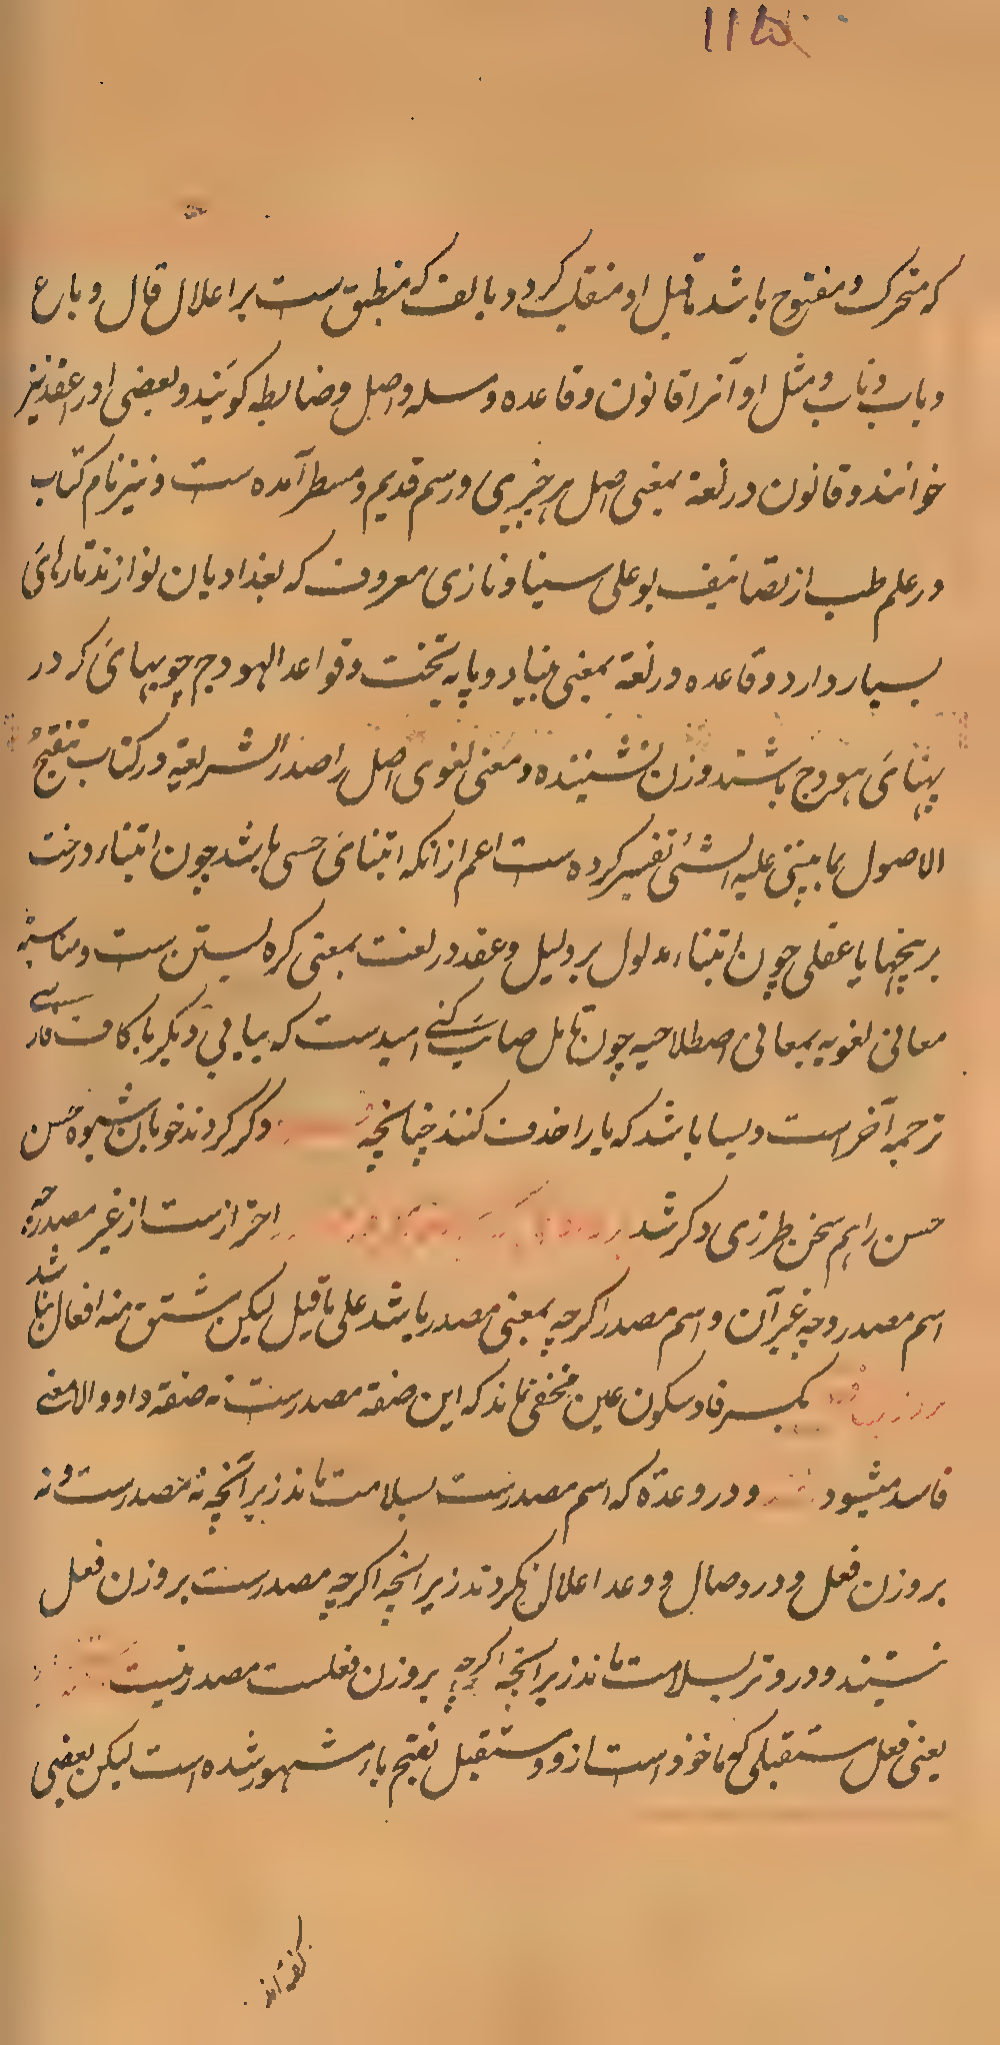 ۱۱۵
که متحرک و مفتوح باشد ماقبل او منقلب گردد بالف که منطبق ست بر اعلال قال و باع
و باب و ناب و مثل او آنرا قانون و قاعده و مسله و اصل و ضابطه گویند و بعضی اور اعقد نیز
خوانند و قانون در لغة بمعنی اصل هر چیزی و رسم قدیم و مسطر آمده ست و نیز نام کتاب
در علم طب از تصانیف بوعلی سینا و نازی معروف که بغدادیان نوازند تارهائ
بسیار دارد و قاعده در لغة بمعنی بنیاد و پایه تخت و قواعد الهودج چوبهائ که در
پهنائ هودج باشند و زن نشیننده و معنی لغوی اصل را صدر الشریعة در کتاب تنقیح
الاصول بما یبتنی علیه الشئ تفسیر کرده ست اعم ازانکه ابتنائ حسی باشد چون ابتناء درخت
بر بیخها یا عقلی چون ابتناء مدلول بر دلیل و عقد در لغت بمعنی گره بستن ست و مناسبة
معانی لغویه بمعانی اصطلاحیه چون تامل صائب کنی امیدست که بیابی دیگر با کاف فارسی
ترجمه آخرست و بسا باشد که یا را حذف کنند چنانچه دگر کردند خوبان شیوه حسن
حسن را هم سخن طرزی دگر شد احترازست از غیر مصدر چه
اسم مصدر و چه غیر آن و اسم مصدر اگرچه بمعنی مصدر باشد علی ما قیل لیکن مشتق منه افعال نباشد
بکسر فا و سکون عین مخفی نماند که این صفة مصدرست نه صفة واو والا معنی
فاسد میشود و در وعدة که اسم مصدرست بسلامت ماند زیرانچه نه مصدرست و نه
بر وزن فعل و در وصال و وعد اعلال نکردند زیرانچه اگرچه مصدرست بر وزن فعل
نیستند و در وتر بسلامت ماند زیرانچه اگرچه بر وزن فعلست مصدر نیست
یعنی فعل مستقبلی که ماخوذ است ازو و مستقبل بفتح باء مشهور شده است لیکن بعضی
گفته اند